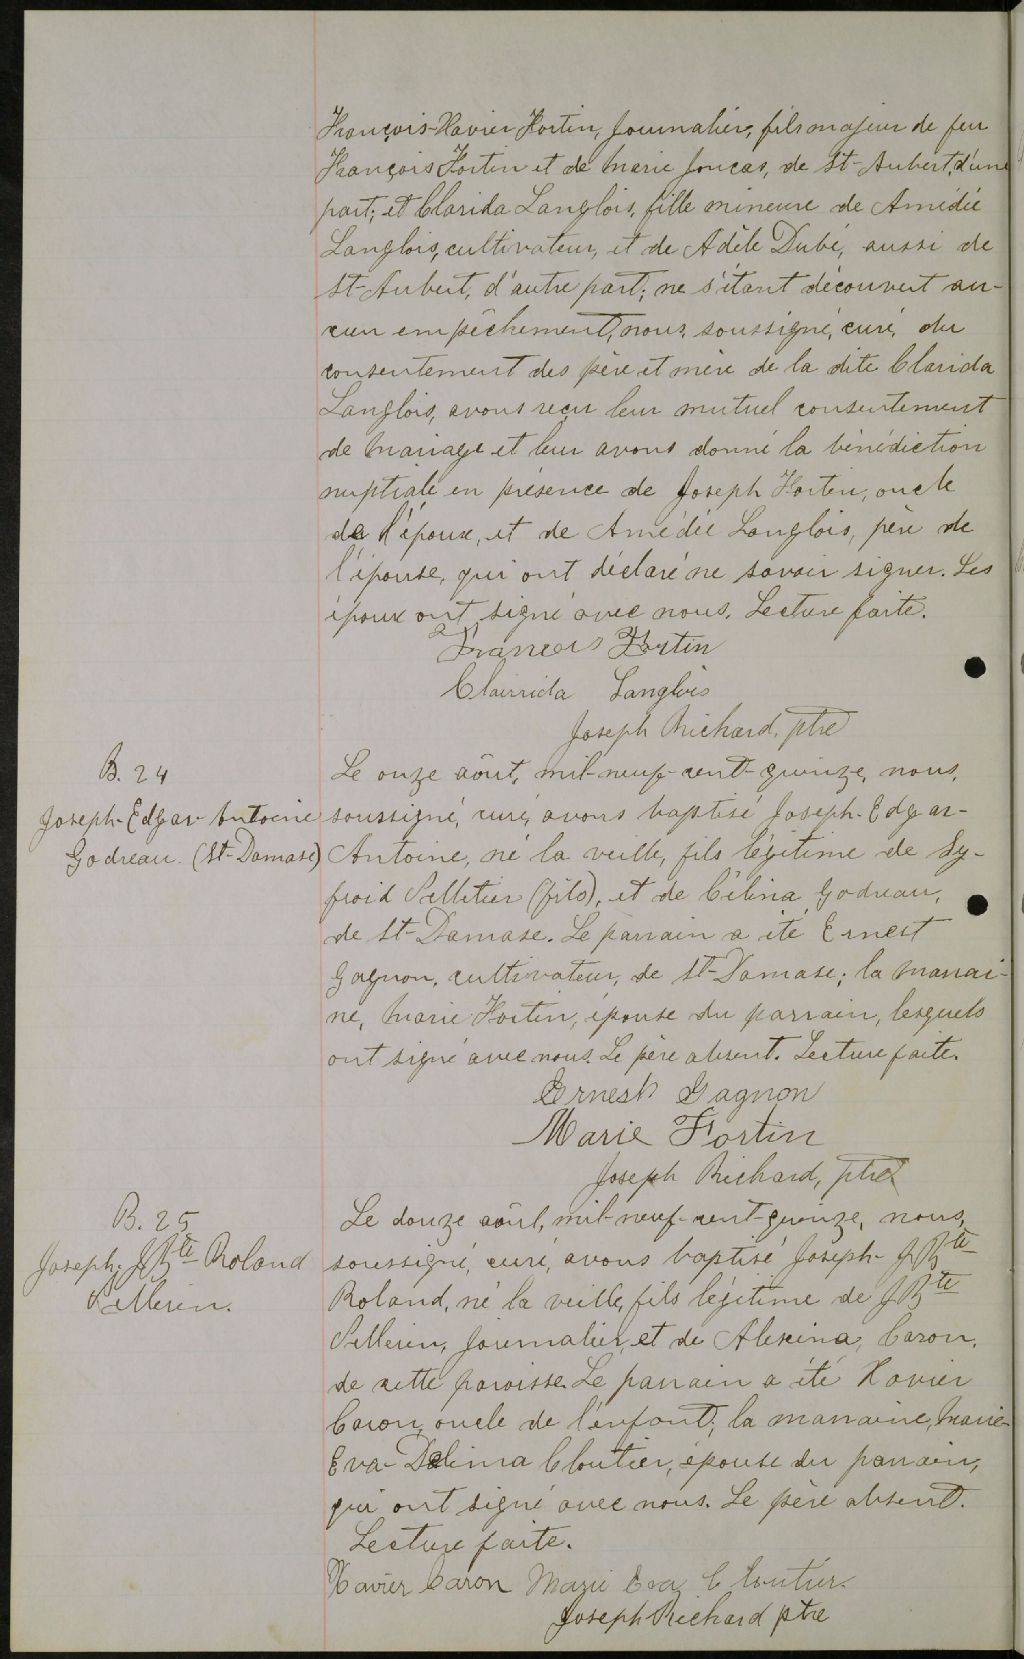 François-Xavier Fortin, journalier, fils majeur de feu
François Fortin et de Marie Joncas, de St-Aubert, d'une
part; et Clarida Langlois, fille mineure de Amédée
Langlois, cultivateur, et de Adèle Dubé, aussi de
St-Aubert, d'autre part; ne s'étant découvert au-
cun empêchement, nous, soussigné, curé, du
consentement des père et mère de la dite Clarida
Langlois, avons reçu leur mutuel consentement
de mariage et leur avons donné la bénédiction
nuptiale en présence de Joseph Fortin, oncle
de l'époux, et de Amédée Langlois, père de
l'épouse, qui ont déclaré ne savoir signer. Les
époux ont signé avec nous. Lecture faite.
François Fortin
Clairida Langlois
Joseph Richard, ptre
B. 24
Joseph-Edgar-Antoine
Godreau (St-Damase)
Le onze août, mil-neuf-cent-quinze, nous,
soussigné, curé, avons baptisé Joseph-Edgar-
Antoine, né la veille, fils légitime de Sy-
froid Pelletier (fils), et de Célina Godreau,
de St-Damase. Le parrain a été Ernest
Gagnon, cultivateur, de St-Damase; la marrai-
ne, Marie Fortin, épouse du parrain, lesquels
ont signé avec nous. Le père absent. Lecture faite.
Ernest Gagnon
Marie Fortin
Joseph Richard, ptre
B. 25
Joseph-J Bte Roland
Pellerin.
Le douze août, mil-neuf-cent-quinze, nous,
soussigné, curé, avons baptisé Joseph-J Bte
Roland, né la veille, fils légitime de J Bte
Pellerin, journalier, et de Alexina Caron,
de cette paroisse. Le parrain a été Xavier
Caron, oncle de l'enfant; la marraine, Marie-
Eva-Délima Cloutier, épouse du parrain,
qui ont signé avec nous. Le père absent.
Lecture faite.
Xavier Caron Marie Eva Cloutier.
Joseph Richard ptre